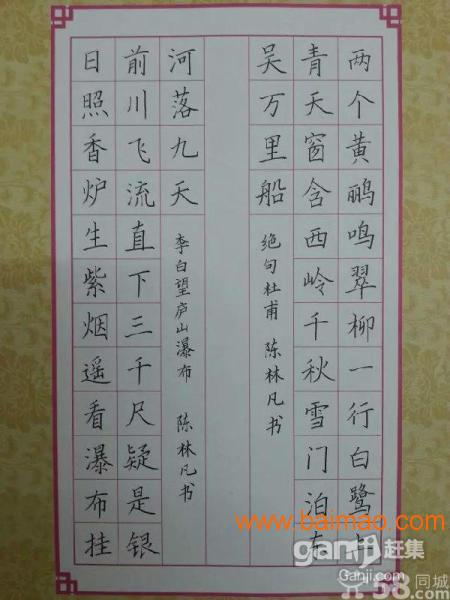 两个黄鹂鸣翠柳一行白鹭上
青天窗含西岭千秋雪门泊东
吴万里船
绝句杜甫 陈林凡书
日照香炉生紫烟遥看瀑布挂
前川飞流直下三千尺疑是银
河落九天
李白望庐山瀑布 陈林凡书
www.baimao.com
ganji赶集
Ganji.com
58同城